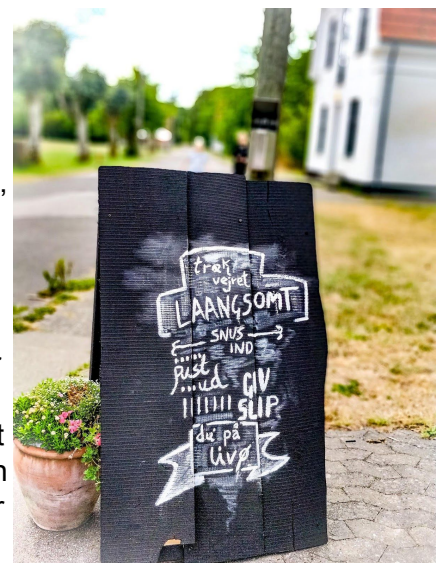 træk
vejret
LAANGSOMT
SNUS
IND
pust
...ud
GIV
SLIP
du på
livø